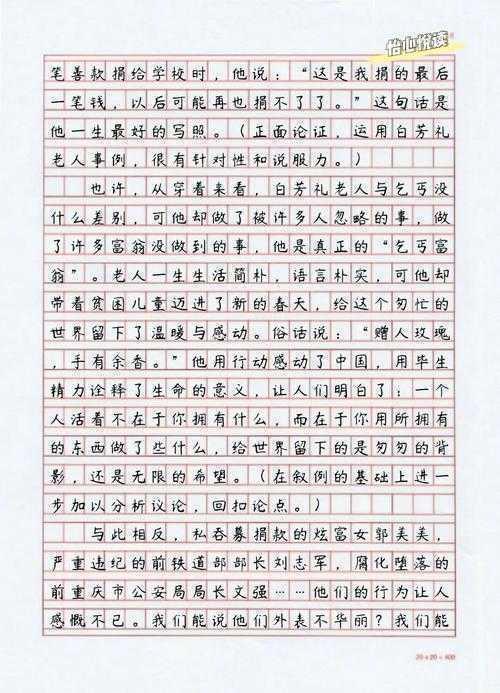 怡心悦读
笔善款捐给学校时，他说：“这是我捐的最后
一笔钱，以后可能再也捐不了了。”这句话是
他一生最好的写照。（正面论证，运用白芳礼
老人事例，很有针对性和说服力。）
也许，从穿着来看，白芳礼老人与乞丐没
什么差别，可他却做了被许多人忽略的事，做
了许多富翁没做到的事，他是真正的“乞丐富
翁”。老人一生生活简朴，语言朴实，可他却
带着贫困儿童迈进了新的春天，给这个匆忙的
世界留下了温暖与感动。俗话说：“赠人玫瑰
，手有余香。”他用行动感动了中国，用毕生
精力诠释了生命的意义，让人们明白了：一个
人活着不在于你拥有什么，而在于你用所拥有
的东西做了些什么，给世界留下的是匆匆的背
影，还是无限的希望。（在叙例的基础上进一
步加以分析议论，回扣论点。）
与此相反，私吞募捐款的炫富女郭美美，
严重违纪的前铁道部部长刘志军，腐化堕落的
前重庆市公安局局长文强……他们的行为让人
感慨不已。我们能说他们外表不华丽？我们能
20×20=400